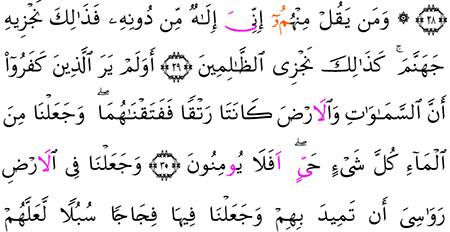 ﴿٢٨﴾ ۞ وَمَن يَقُلْ مِنْهُمُۥٓ إِنِّىَ إِلَـٰهٌ مِّن دُونِهِۦ فَذَٰلِكَ نَجْزِيهِ
جَهَنَّمَ ۚ كَذَٰلِكَ نَجْزِى ٱلظَّـٰلِمِينَ ﴿٢٩﴾ أَوَلَمْ يَرَ ٱلَّذِينَ كَفَرُوٓا۟
أَنَّ ٱلسَّمَـٰوَٰتِ وَٱلَارْضَ كَانَتَا رَتْقًا فَفَتَقْنَـٰهُمَا ۖ وَجَعَلْنَا مِنَ
ٱلْمَآءِ كُلَّ شَىْءٍ حَىٍّ ۖ اَفَلَا يُومِنُونَ ﴿٣٠﴾ وَجَعَلْنَا فِى ٱلَارْضِ
رَوَٰسِىَ أَن تَمِيدَ بِهِمْ وَجَعَلْنَا فِيهَا فِجَاجًا سُبُلًا لَّعَلَّهُمْ